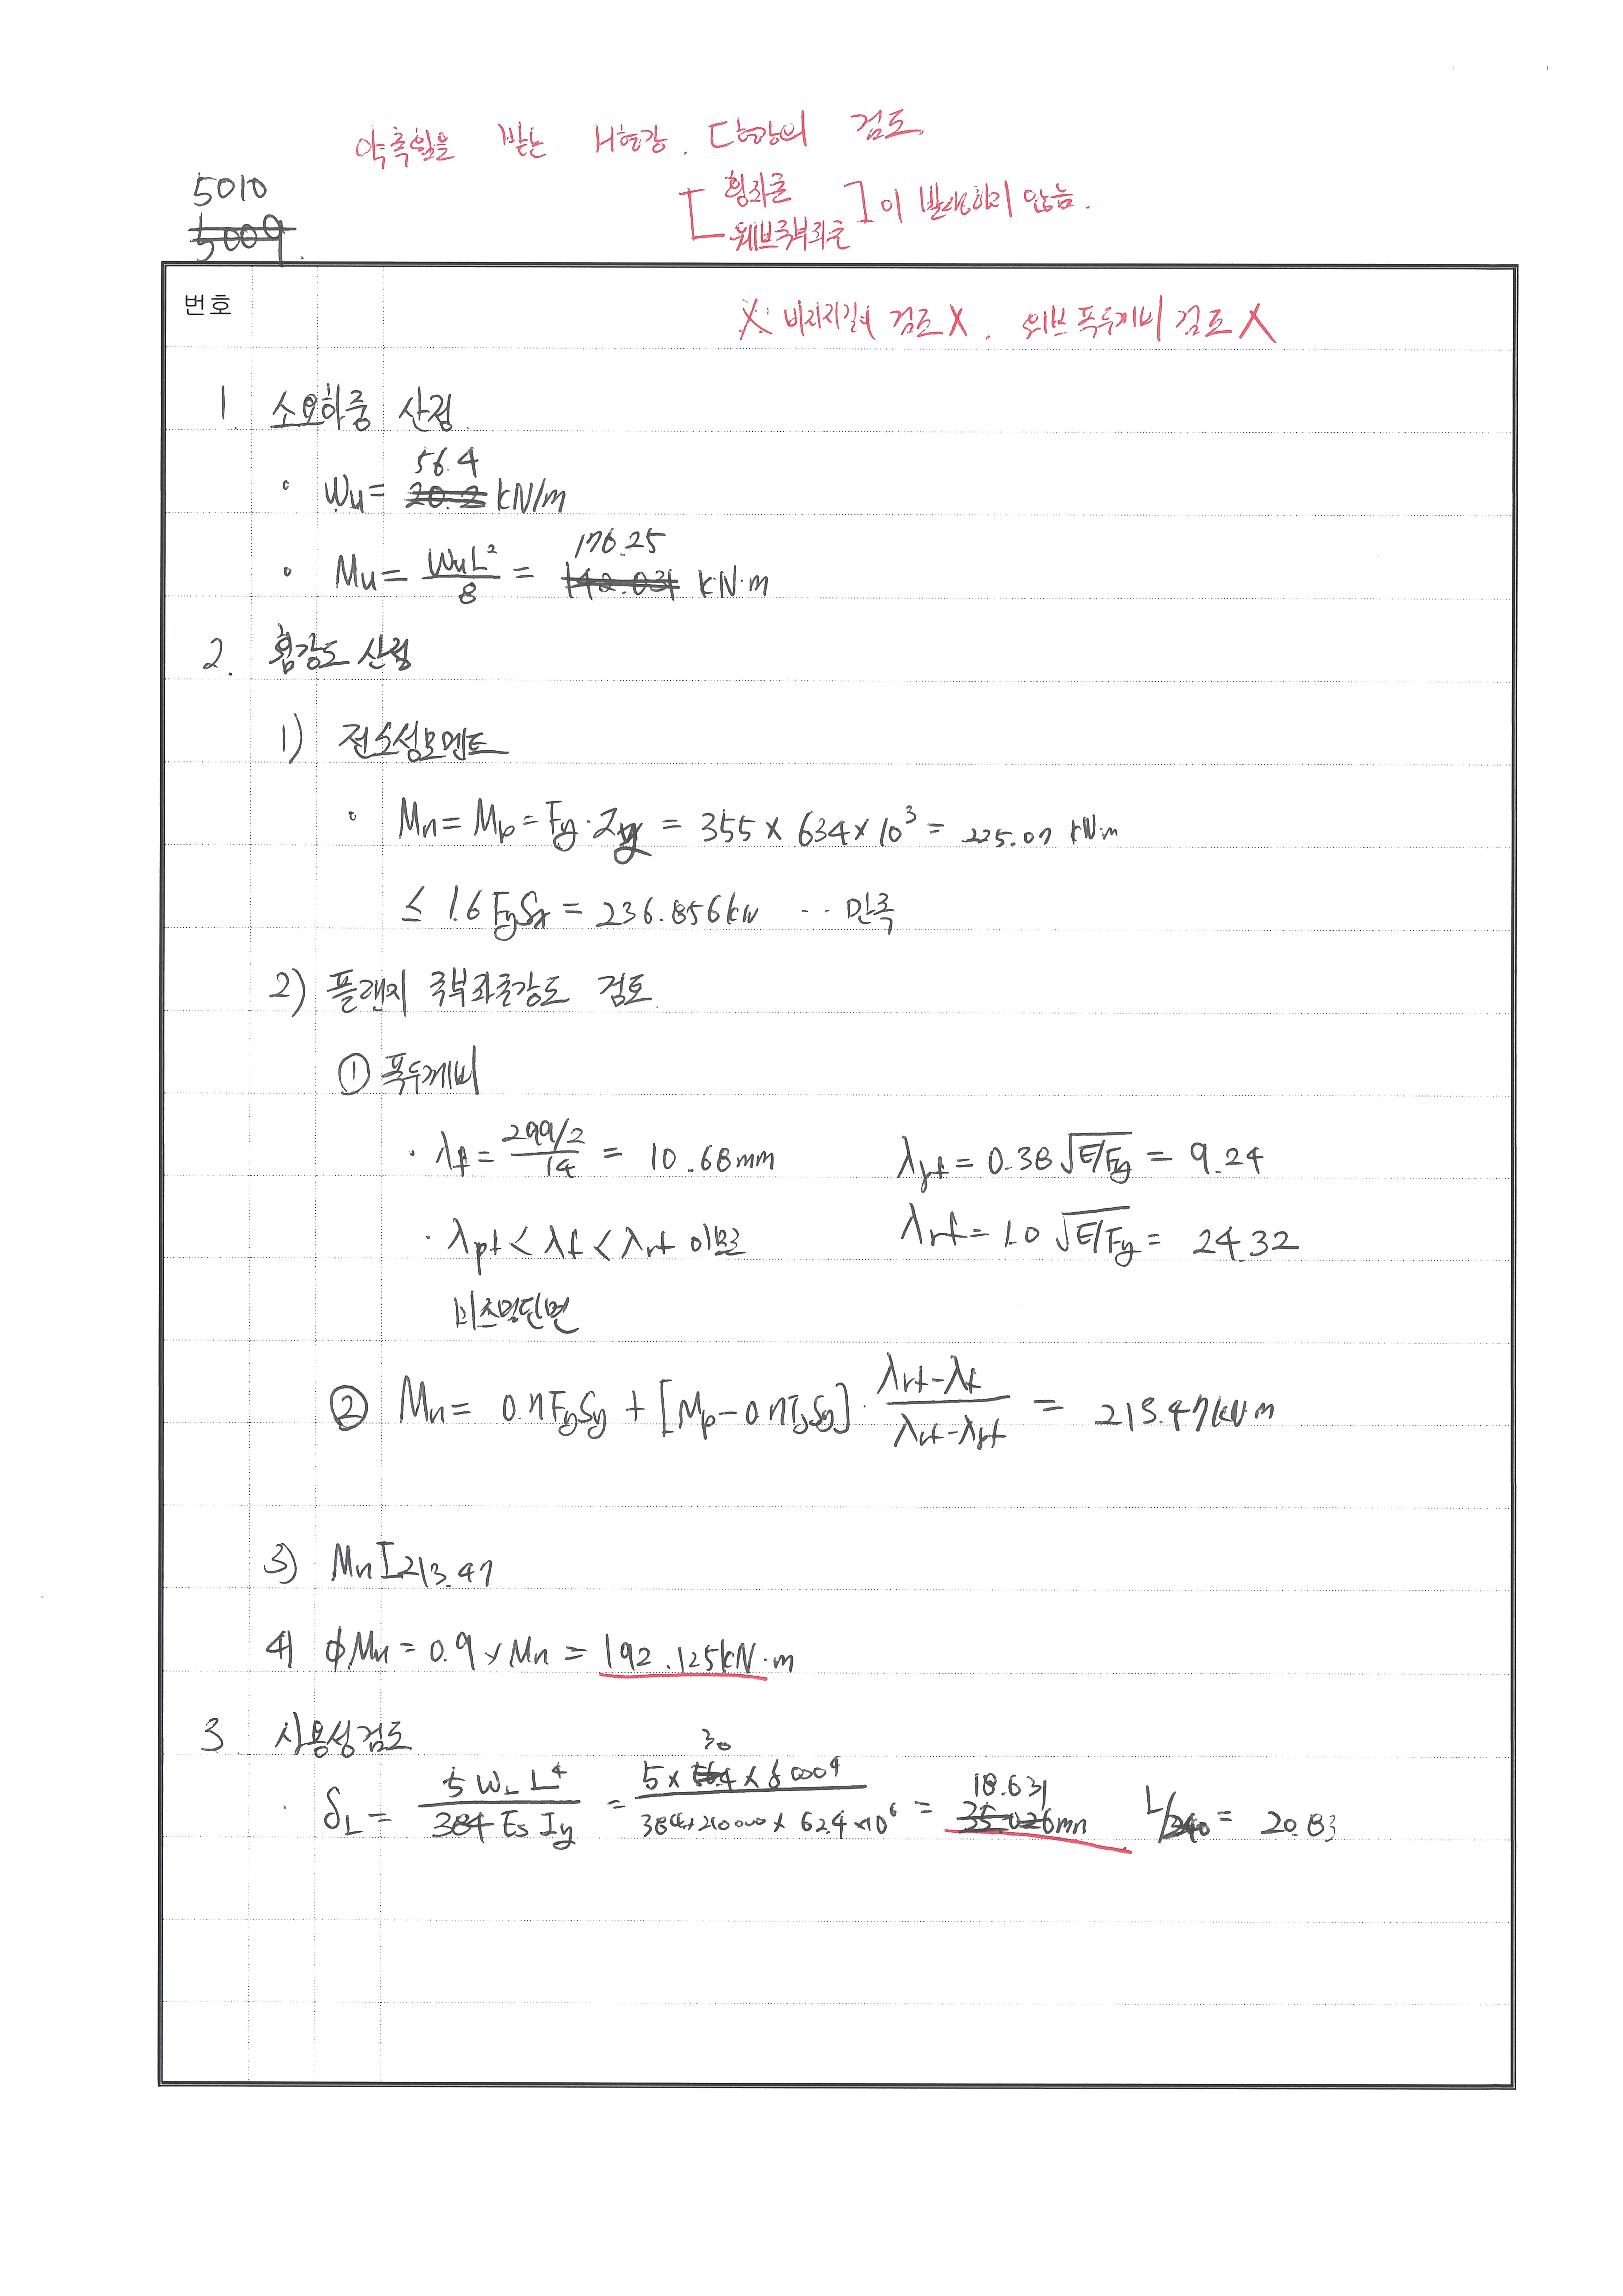 약축휨을 받는 H형강, ㄷ형강의 검토.
5010
[ 횡좌굴
웹브국부좌굴 ] 이 발생하지 않음.
5009.
번호
※ 비지지길이 검토X, 웨브 폭두께비 검토 X
1. 소요하중 산정
56.4
• Wu = 20.2 kN/m
176.25
• Mu = WuL²/8 = 142.031 kN·m
2. 휨강도 산정
1) 전소성모멘트
• Mn = Mp = Fy·Zy = 355 × 634 × 10³ = 225.07 kN·m
≤ 1.6 FySx = 236.856kN ‥ 만족
2) 플랜지 국부좌굴강도 검토.
① 폭두께비
· λf = (299/2)/14 = 10.68mm λpf = 0.38√(E/Fy) = 9.24
· λpf < λf < λrf 이므로 λrf = 1.0 √(E/Fy) = 24.32
비조밀단면
② Mn = 0.7FySy + [Mp - 0.7FySy] · (λrf - λf)/(λrf - λpf) = 213.47kN·m
3) Mn = 213.47
4) φMn = 0.9 × Mn = 192.125kN·m
3 사용성검토
30
· δL = 5 WL L⁴ / 384 Es Iy = 5 × 56.4 × 5000⁴ / 384 × 210000 × 62.4 × 10⁶ = 18.631 35.026mm L/240 = 20.83